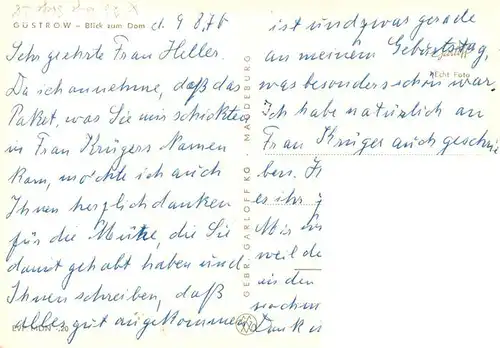 GÜSTROW – Blick zum Dom
d. 9 8.76
Sehr geehrte Frau Heller.
Da ich annehme, daß das
Paket, was Sie mir schickten
in Frau Krügers Namen
kam, möchte ich auch
Ihnen herzlich danken
für die Mühe, die Sie
damit gehabt haben und
Ihnen schreiben, daß
alles gut angekommen
ist und zwar gerade
an meinem Geburtstag,
was besonders schön war.
Ich habe natürlich an
Frau Krüger auch geschrie
ben.
es ihr
weil de
in den
Dank
Echt Foto
GEBR. GARLOFF KG · MAGDEBURG